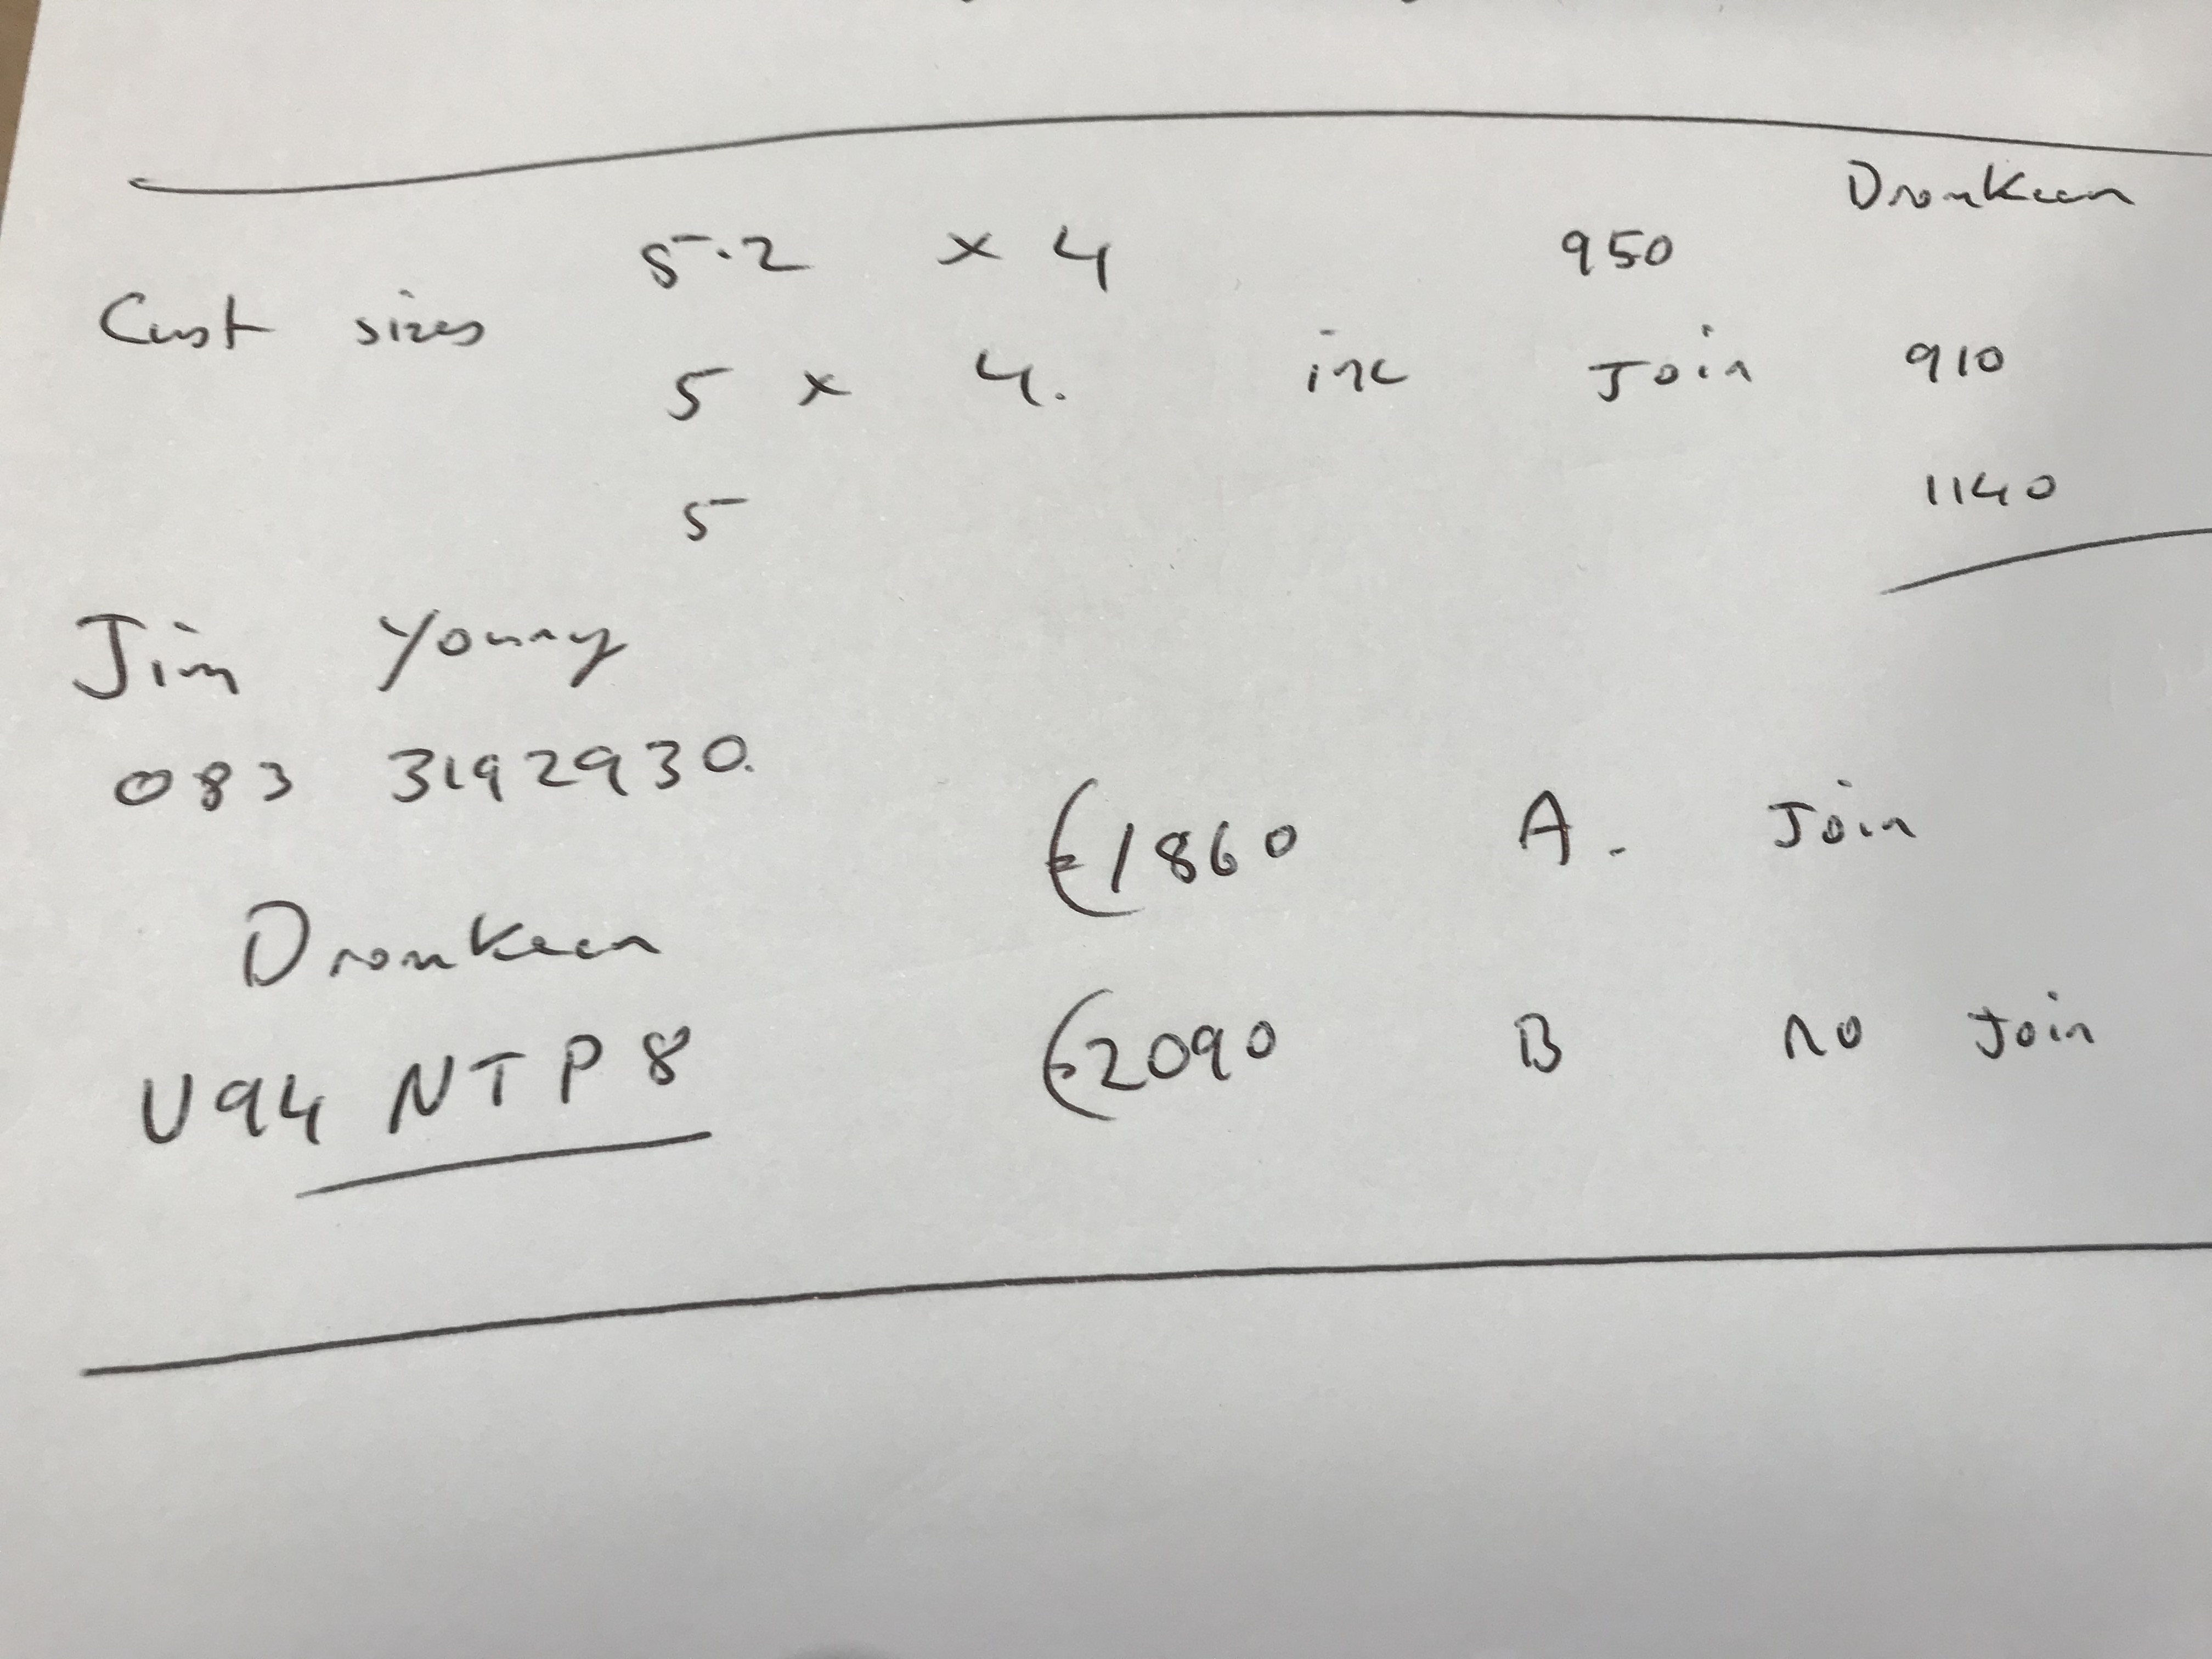 Dromkeen
5.2 x 4 950
Cust sizes
5 x 4. inc Join 910
5 1140
Jim Young
083 3192930.
€1860 A. Join
Dromkeen
€2090 B no Join
U94 NTP8